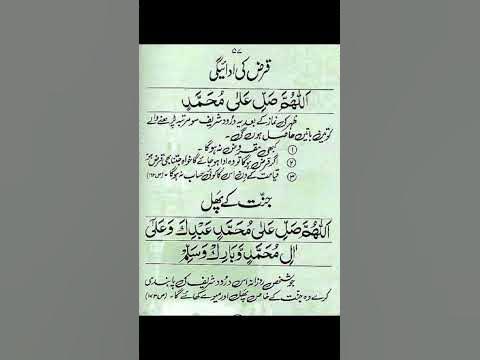 ۵۷
قرض کی ادائیگی
اَللّٰهُمَّ صَلِّ عَلٰى مُحَمَّدٍ
ظہر کی نماز کے بعد یہ درود شریف سو مرتبہ پڑھنے والے
کو تین باتیں حاصل ہوں گی۔
۱ کبھی مقروض نہ ہوگا۔
۲ اگر قرض ہوگا تو وہ ادا ہو جائے گا خواہ جتنا بھی قرض ہو
۳ قیامت کے دن اس کا کوئی حساب نہ ہوگا۔
جنت کے پھل
اَللّٰهُمَّ صَلِّ عَلٰى مُحَمَّدٍ عَبْدِكَ وَعَلٰى
اٰلِ مُحَمَّدٍ وَّبَارِكْ وَسَلِّمْ
جو شخص روزانہ اس درود شریف کی پابندی
کرے وہ جنت کے خاص پھل اور میوے کھائے گا۔